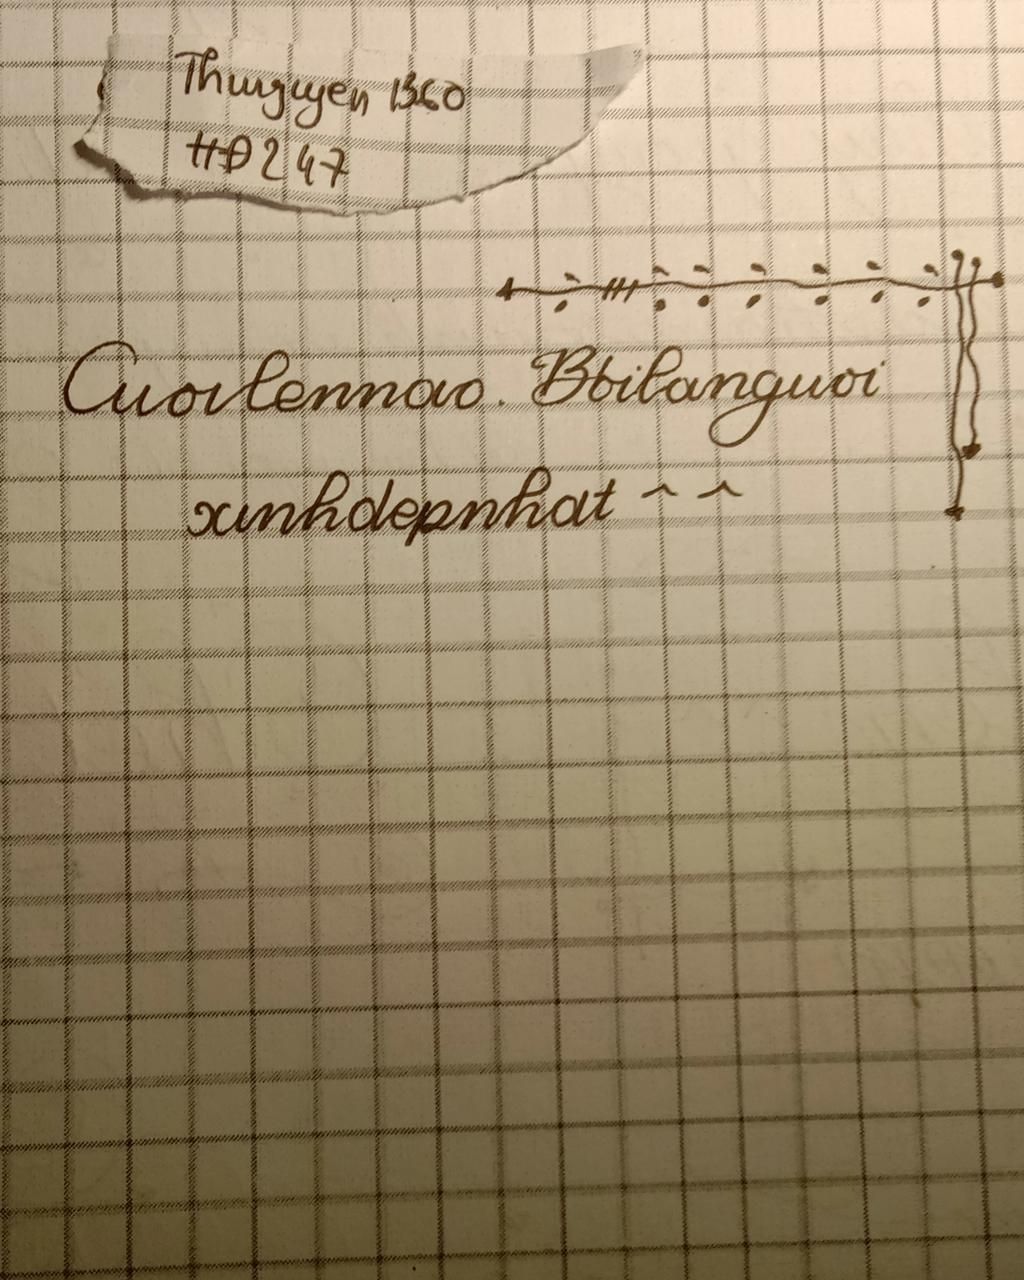 Thuyguyen 1360
HĐ247
Cuoilennao. Bboilanguoi
xinhdepnhat ^ ^